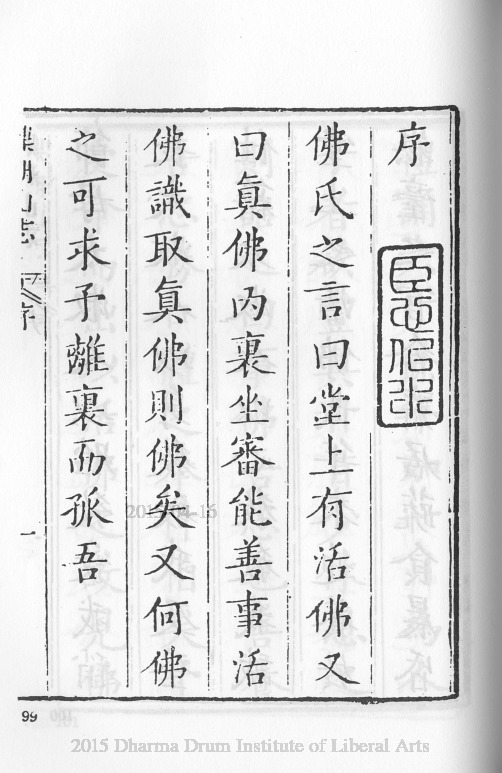 序
臣心佀水
佛氏之言曰堂上有活佛又
曰眞佛内裏坐審能善事活
佛識取眞佛則佛矣又何佛
之可求予離裏而孤吾
湖山志 序 一
99
2015 Dharma Drum Institute of Liberal Arts